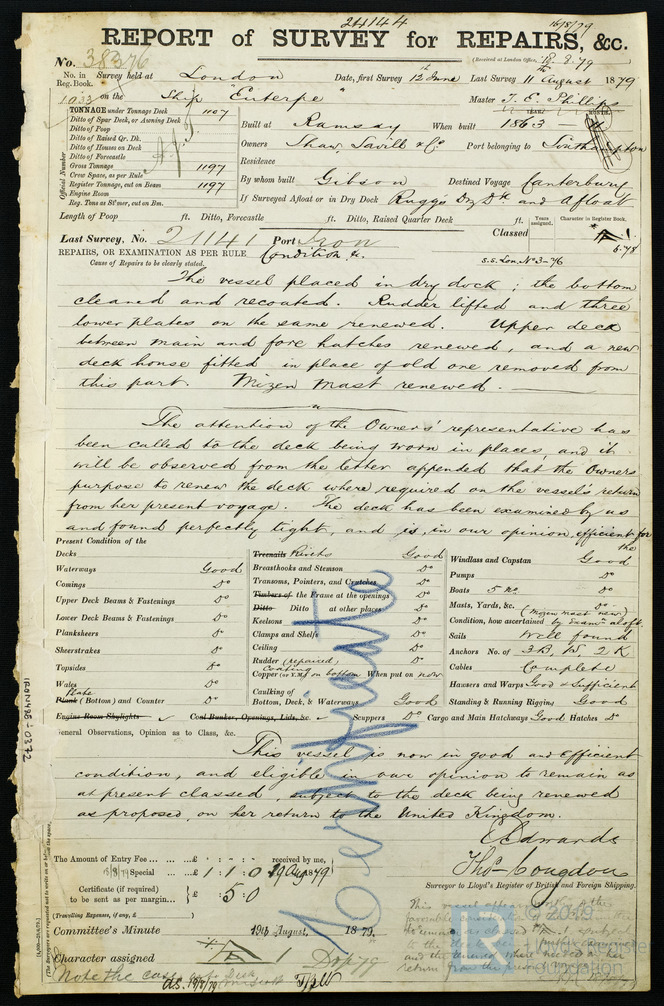 24144
16/8/79
REPORT of SURVEY for REPAIRS, &c.
(Received at London Office, 18.8.79
No. 38376
No. in Reg. Book. Survey held at London Date, first Survey 12th June Last Survey 11th August 1879
1033 on the Ship "Euterpe" Master T. E. Phillips
TONNAGE under Tonnage Deck 1107
Ditto of Spar Deck, or Awning Deck
Ditto of Poop
Ditto of Raised Qr. Dk.
Ditto of Houses on Deck
Ditto of Forecastle
Gross Tonnage 1197
Crew Space, as per Rule
Register Tonnage, cut on Beam 1197
Engine Room
Reg. Tons as St'mer, cut on Bm.
Official Number
YEARS MONTH
Built at Ramsay When built 1863
Owners Shaw, Savill & Co Port belonging to Southampton
Residence
By whom built Gibson Destined Voyage Canterbury
If Surveyed Afloat or in Dry Dock Ruggs Dry Dk and Afloat
Length of Poop ft. Ditto, Forecastle ft. Ditto, Raised Quarter Deck ft.
Years assigned. Character in Register Book.
Last Survey, No. 21141 Port Iron Classed A 1
5.78
REPAIRS, OR EXAMINATION AS PER RULE Condition &c.
Cause of Repairs to be clearly stated.
s.s. Lon. No 3-76
The vessel placed in dry dock; the bottom
cleaned and recoated. Rudder lifted and three
lower plates on the same renewed. Upper deck
between main and fore hatches renewed, and a new
deck house fitted in place of old one removed from
this part. Mizen Mast renewed.
The attention of the Owners' representative has
been called to the deck being worn in places, and it
will be observed from the letter appended that the Owners
purpose to renew the deck where required on the vessel's return
from her present voyage. The deck has been examined by us
and found perfectly tight, and is, in our opinion, efficient for
the
Present Condition of the
Decks
Waterways Good
Comings Do
Upper Deck Beams & Fastenings Do
Lower Deck Beams & Fastenings Do
Planksheers Do
Sheerstrakes Do
Topsides Do
Wales Do
Plate
Plank (Bottom) and Counter Do
Engine Room Skylights
Treenails Rivets Good
Breasthooks and Stemson Do
Transoms, Pointers, and Crutches Do
Timbers of the Frame at the openings Do
Ditto Ditto at other places Do
Keelsons Do
Clamps and Shelfs Do
Ceiling Do
Rudder (repaired) Do
Coating
Copper (or Y.M.) on bottom When put on now
Caulking of
Bottom, Deck, & Waterways Good
Coal Bunker, Openings, Lids, &c. Scuppers Do
Windlass and Capstan Good
Pumps Do
Boats 5 No. Do
Masts, Yards, &c. (mizen mast new) Do
Condition, how ascertained by Examn aloft
Sails Well found
Anchors No. of 3 B, 1 S, 2 K
Cables Complete
Hawsers and Warps Good & Sufficient
Standing & Running Rigging Good
Cargo and Main Hatchways Good Hatches Do
Certificate
General Observations, Opinion as to Class, &c.
This vessel is now in good and efficient
condition, and eligible in our opinion to remain as
at present classed, subject to the deck being renewed
as proposed, on her return to the United Kingdom.
Edwards
Thos Congdon
Surveyor to Lloyd's Register of British and Foreign Shipping.
The Amount of Entry Fee £ : : received by me,
18/8/79 Special £ 1 : 1 : 0 19 Aug 1879
Certificate (if required) to be sent as per margin. £ 5 : 0
(Travelling Expenses, if any, £ )
Committee's Minute 19th August, 1879.
Character assigned A 1
Note the case
A.S. 19/8/79
IRON498-0372
© 2019
Foundation